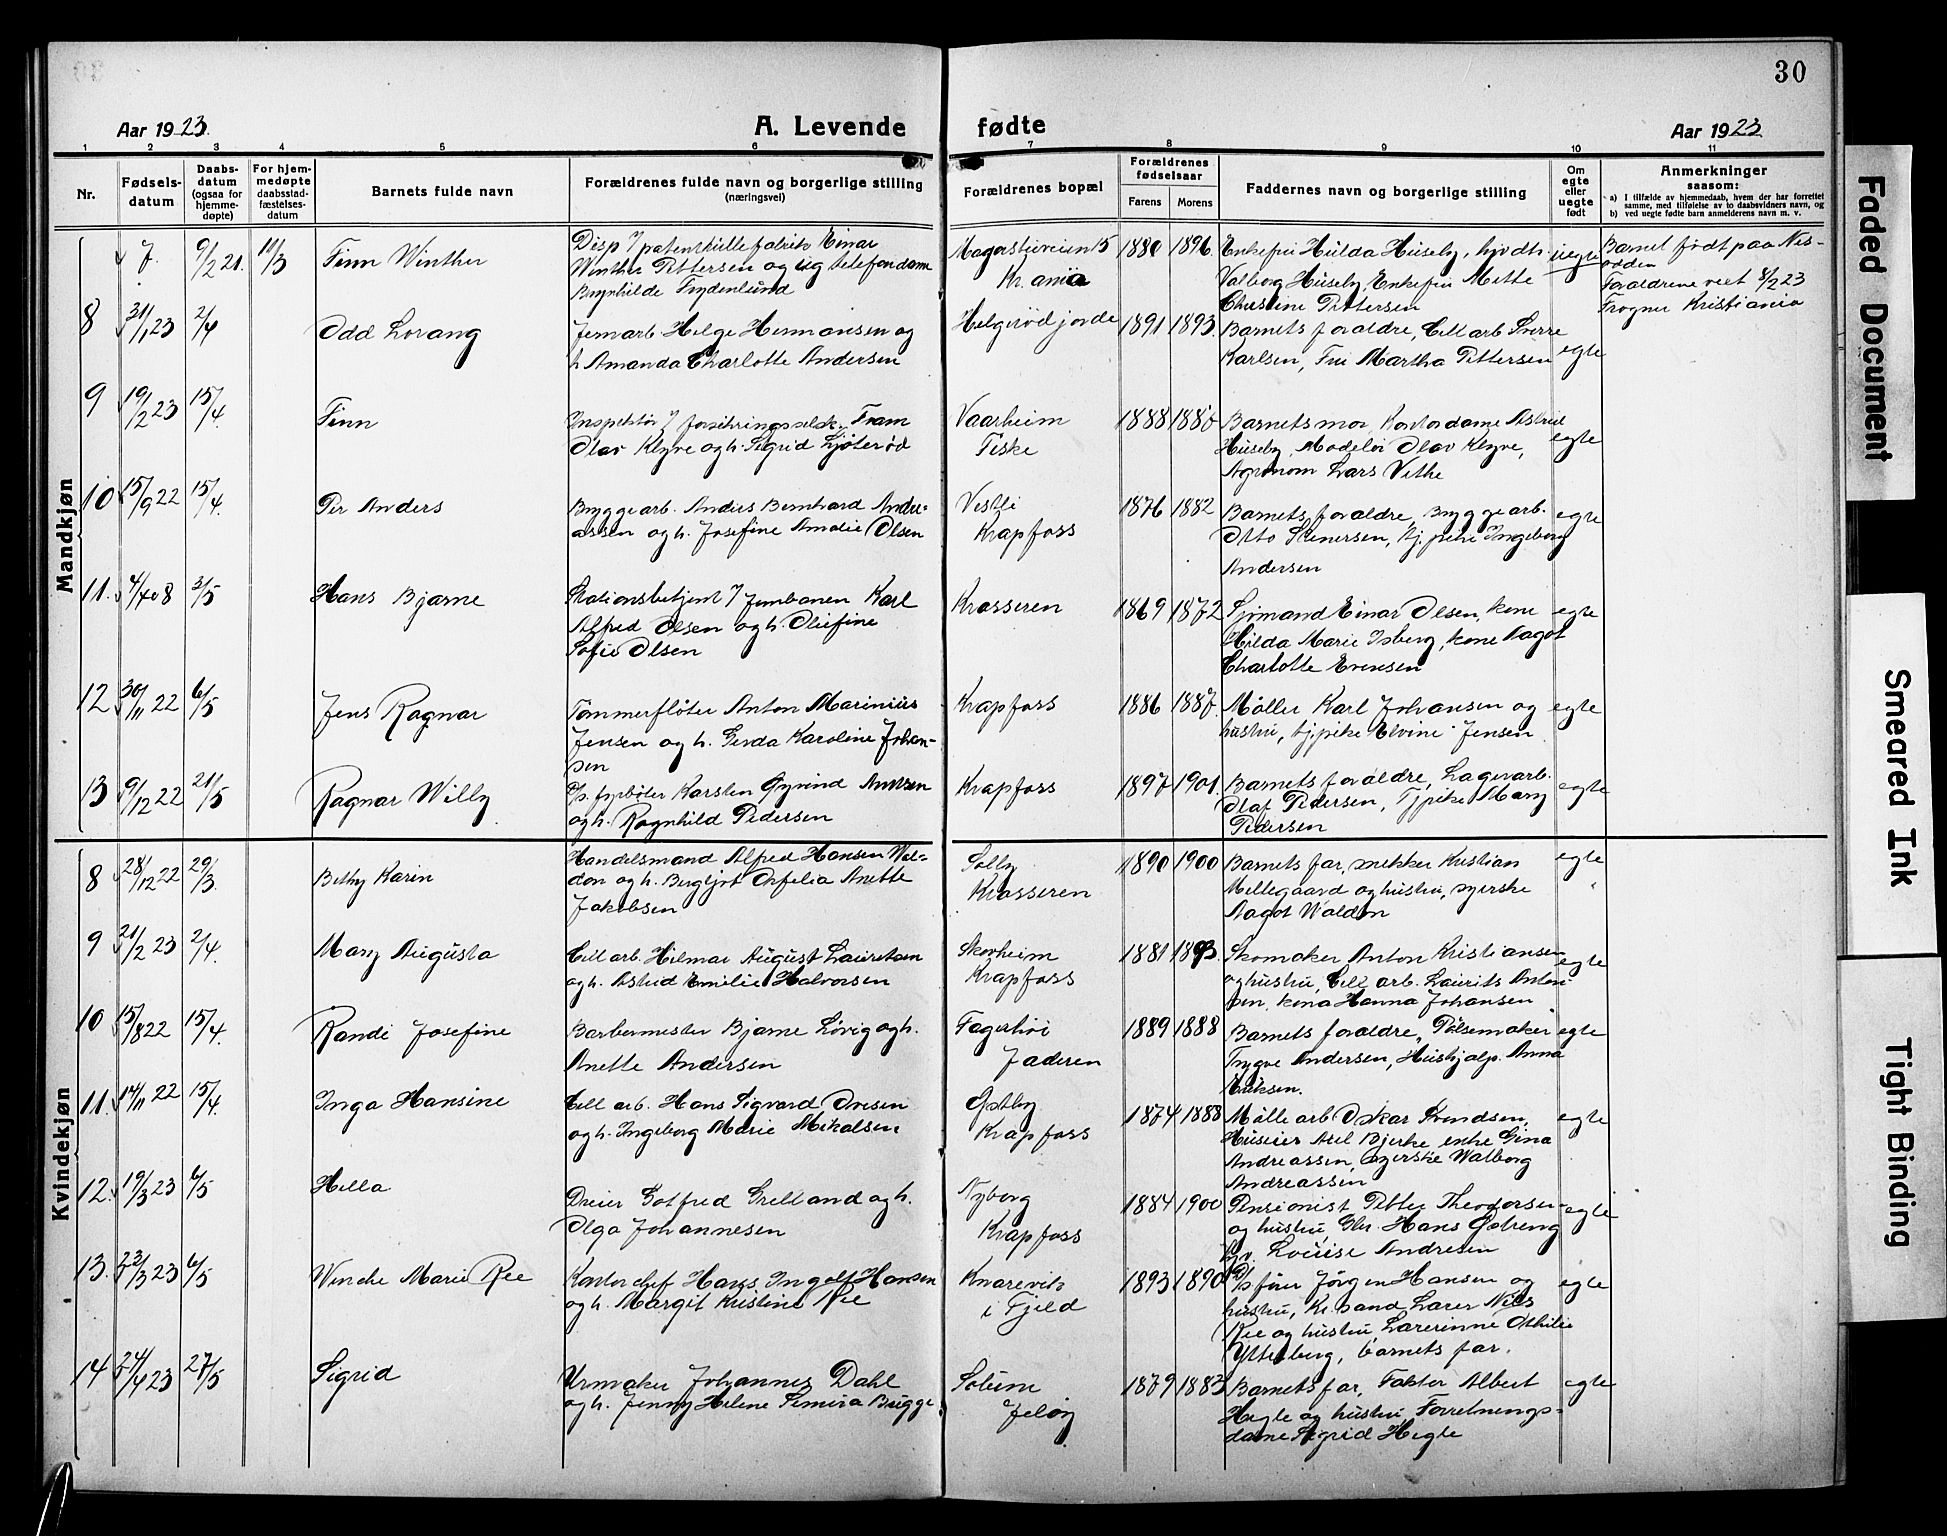 30
Aar 1923.
A. Levende
fødte
Aar 1923
1 2 3 4 5 6 7 8 9 10 11
Nr.
Fødsels-
datum
Daabs-
datum
(ogsaa for
hjemme-
døpte)
For hjem-
medøpte
daabsstad-
fæstelses-
datum
Barnets fulde navn
Forældrenes fulde navn og borgerlige stilling
(næringsvei)
Forældrenes bopæl
Forældrenes
fødselsaar
Farens
Morens
Faddernes navn og borgerlige stilling
Om
egte
eller
uegte
født
Anmerkninger
saasom:
a) I tilfælde av hjemmedaab, hvem der har forrettet
samme, med tilføielse av to daabsvidners navn, og
b) ved uegte fødte barn anmelderens navn m. v.
Mandkjøn
7. 9/2 21. 11/3 Finn Winther
Einar
Winther Pettersen og ug telefondame
Brynhilde Frydenlund
1880 1896.
Enkefru Hulda Huseby,
Valborg Huseby, Enkefru Mette
Christine Pettersen
uegte
Barnet født paa Nes-
odden
Foraldrene viet 8/2 23
Frogner Kristiania
8 31/1 23 2/4 Odd Lorang
Jernarb Helge Hermansen og
h Amanda Charlotte Andersen
Helgerødjorde
1891 1893.
Barnets foraldre, Cell arb Sverre
Karlsen, Fru Martha Pettersen
egte
9 19/2 23 15/4. Finn
Inspektør i forsikringsselsk. Fram
Olav Klyve og h. Sigrid Ljøterød
Vaarheim
Tiske
1888
Barnets mor, Kontordame Astrid
Huseby, Olav Klyve,
Agronom Lars Vethe
egte
10 15/9 22 15/4. Per Anders
Bryggearb. Anders Bernhard Andre-
assen og h. Josefine Amalie Olsen
Vestli
Krapfoss
1876 1882
Barnets foraldre, Bryggearb.
Otto Stenersen, tj. pike Ingeborg
Andersen
egte
11. 3/5 Hans Bjarne
Stationsbetjent v/ Jernbanen Karl
Alfred Olsen og h. Olefine
Sofie Olsen
Krosseren
1869 1872
Sjømand Einar Olsen, kone
Hilda Marie Isberg, kone Aagot
Charlotte Evensen
egte
12 30/11 22 6/5 Jens Ragnar
Tømmerfløter Anton Marinius
Jensen og h. Gerda Karoline Johan-
sen
Krapfoss
1886 1887.
Møller Karl Johansen og
hustru, tj. pike Elvine Jensen
egte
13 9/12 22 21/5 Ragnar Willy
fyrbøter Karsten Øyvind Arntzen
og h. Ragnhild Pedersen
Krapfoss
1897 1901.
Barnets foraldre, Lagerarb.
Olaf Pedersen, Tj. pike Mary
Pedersen
egte
Kvindekjøn
8 28/12 22 29/3. Bethy Karin
Handelsmand Alfred Hansen Wal-
don og h. Bergljot Ofelia Anette
Jakobsen
Solby
Krosseren
1890 1900
Barnets far, snekker Kristian
Millegaard og hustru, syerske
Aagot Waldon
egte
9 21/2 23 2/4. Mary Augusta
Cell arb. Hilmar August Lauretsen
og h. Astrid Emilie Halvorsen
Skovheim
Krapfoss
1881 1893.
Skomaker Anton Kristiansen
og hustru, Cell arb. Laurits Anton-
sen, kona Hanna Johansen
egte
10 15/8 22 15/4. Randi Josefine
Barbermester Bjarne Løvig og h.
Anette Andersen
Jaderen
1889 1888
Barnets foraldre, Pølsemaker
Trygve Andersen, Hushjalp. Anna
Eriksen.
egte
11. 14/11 22 15/4. Inga Hansine
Cell arb. Hans Sigvard Oresen
og h. Ingeborg Marie Mikalsen
Østby
Krapfoss
1874 1888
Mølle arb Oskar Svendsen,
Huseier Axel Bjerke, enke Gina
Andreassen, syerske Walborg
Andreassen
egte
12. 19/3 23 6/5 Hella
Dreier Gotfred Grelland og h.
Olga Johannesen
Nyborg
Krapfoss
1884 1900
Pensionist Petter Theodorsen
og hustru, Hans Østreng
Louise Andresen
egte
13. 23/3 23 6/5 Wenche Marie Ree
Kontorchef Hans Ingolf Hansen
og h. Margit Kristine Ree
Knarevik
i Fjeld
1893 1890
Jørgen Hansen og
hustru, Kr.sand Larer Nils
Ree og hustru, Larerinne Othilie
Ytterberg, barnets far.
egte
14. 24/4 23 27/5 Sigrid
Urmaker Johannes Dahl
og h. Jenny Helene Semira Brügge
Solum
Jeløy
1879 1883
Barnets far, Faktor Albert
Hegle og hustru Forretnings-
dame Sigrid Hegle
egte
Faded Document
Smeared Ink
Tight Binding